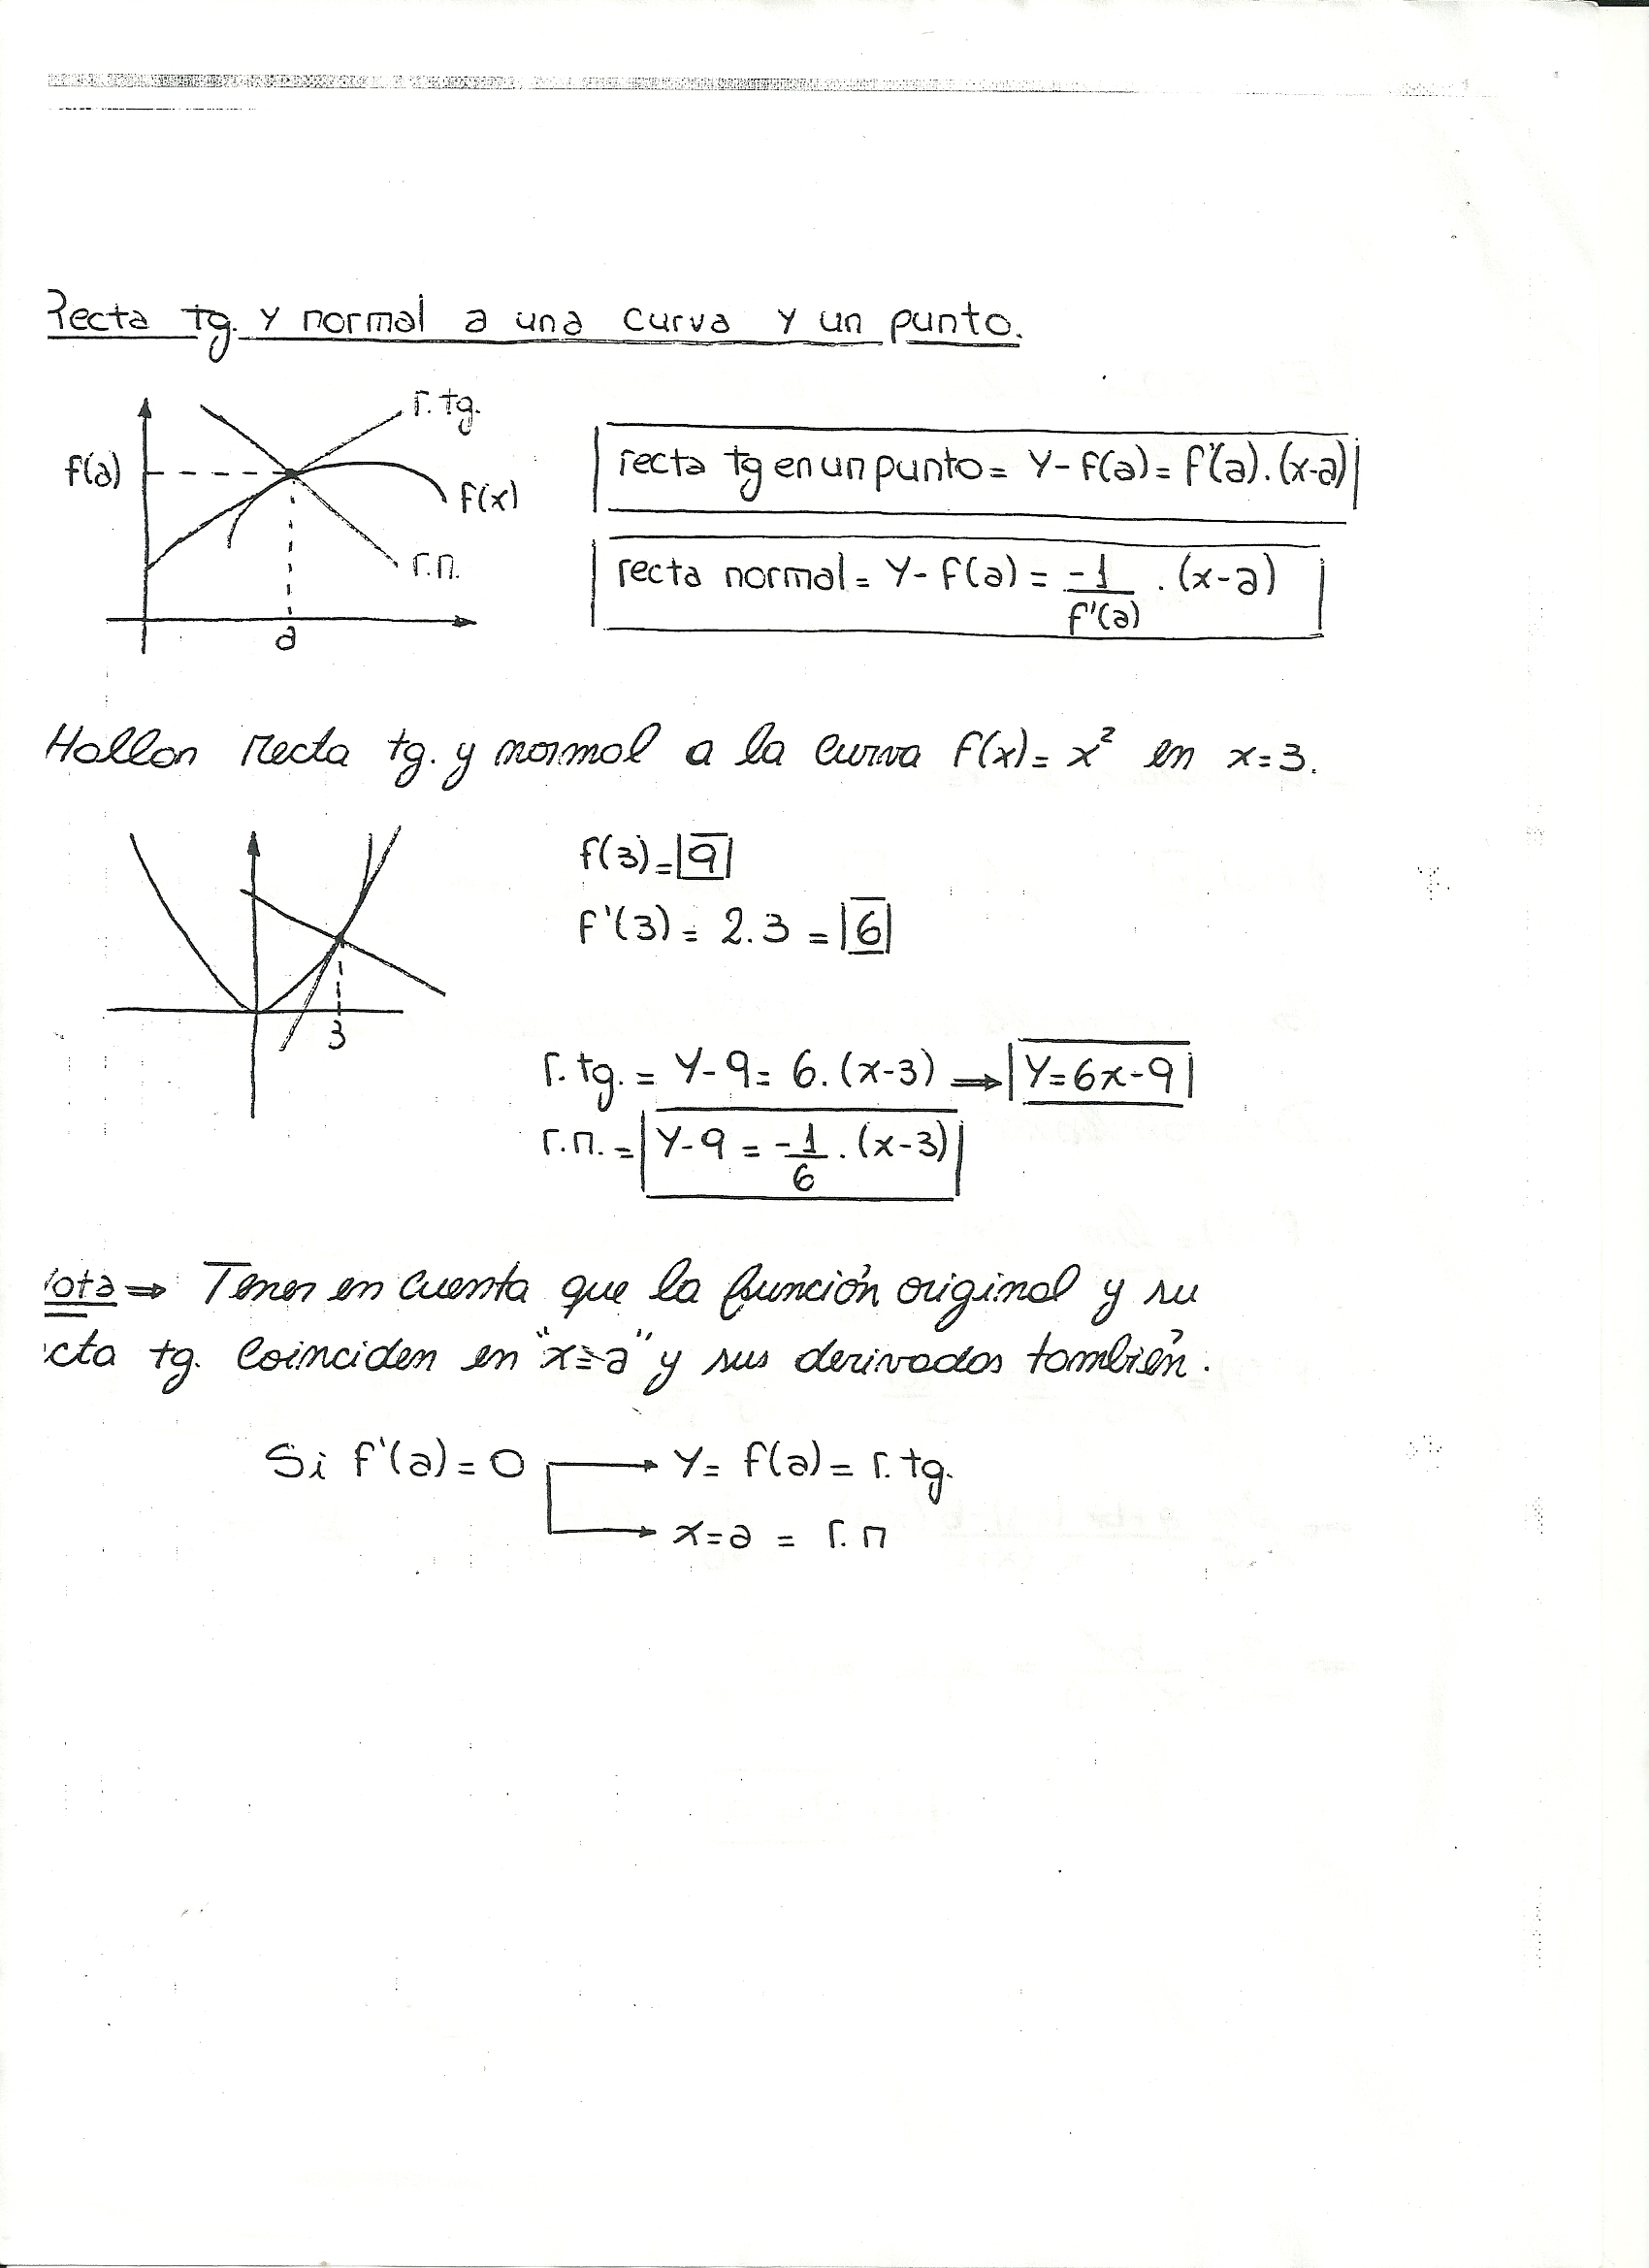 Recta tg. y normal a una curva y un punto.
r. tg.
f(a)
f(x)
r.n.
a
recta tg en un punto = Y - f(a) = f'(a) . (x-a)
recta normal = Y - f(a) = -1/f'(a) . (x-a)
Hallar recta tg. y normal a la curva f(x) = x² en x=3.
3
f(3) = 9
f'(3) = 2.3 = 6
r. tg. = Y - 9 = 6. (x-3) ⇒ Y = 6x - 9
r.n. = Y - 9 = -1/6 . (x-3)
Nota ⇒ Tener en cuenta que la función original y su
recta tg. coinciden en "x=a" y sus derivadas también.
Si f'(a) = 0 → Y = f(a) = r. tg.
→ x = a = r. n